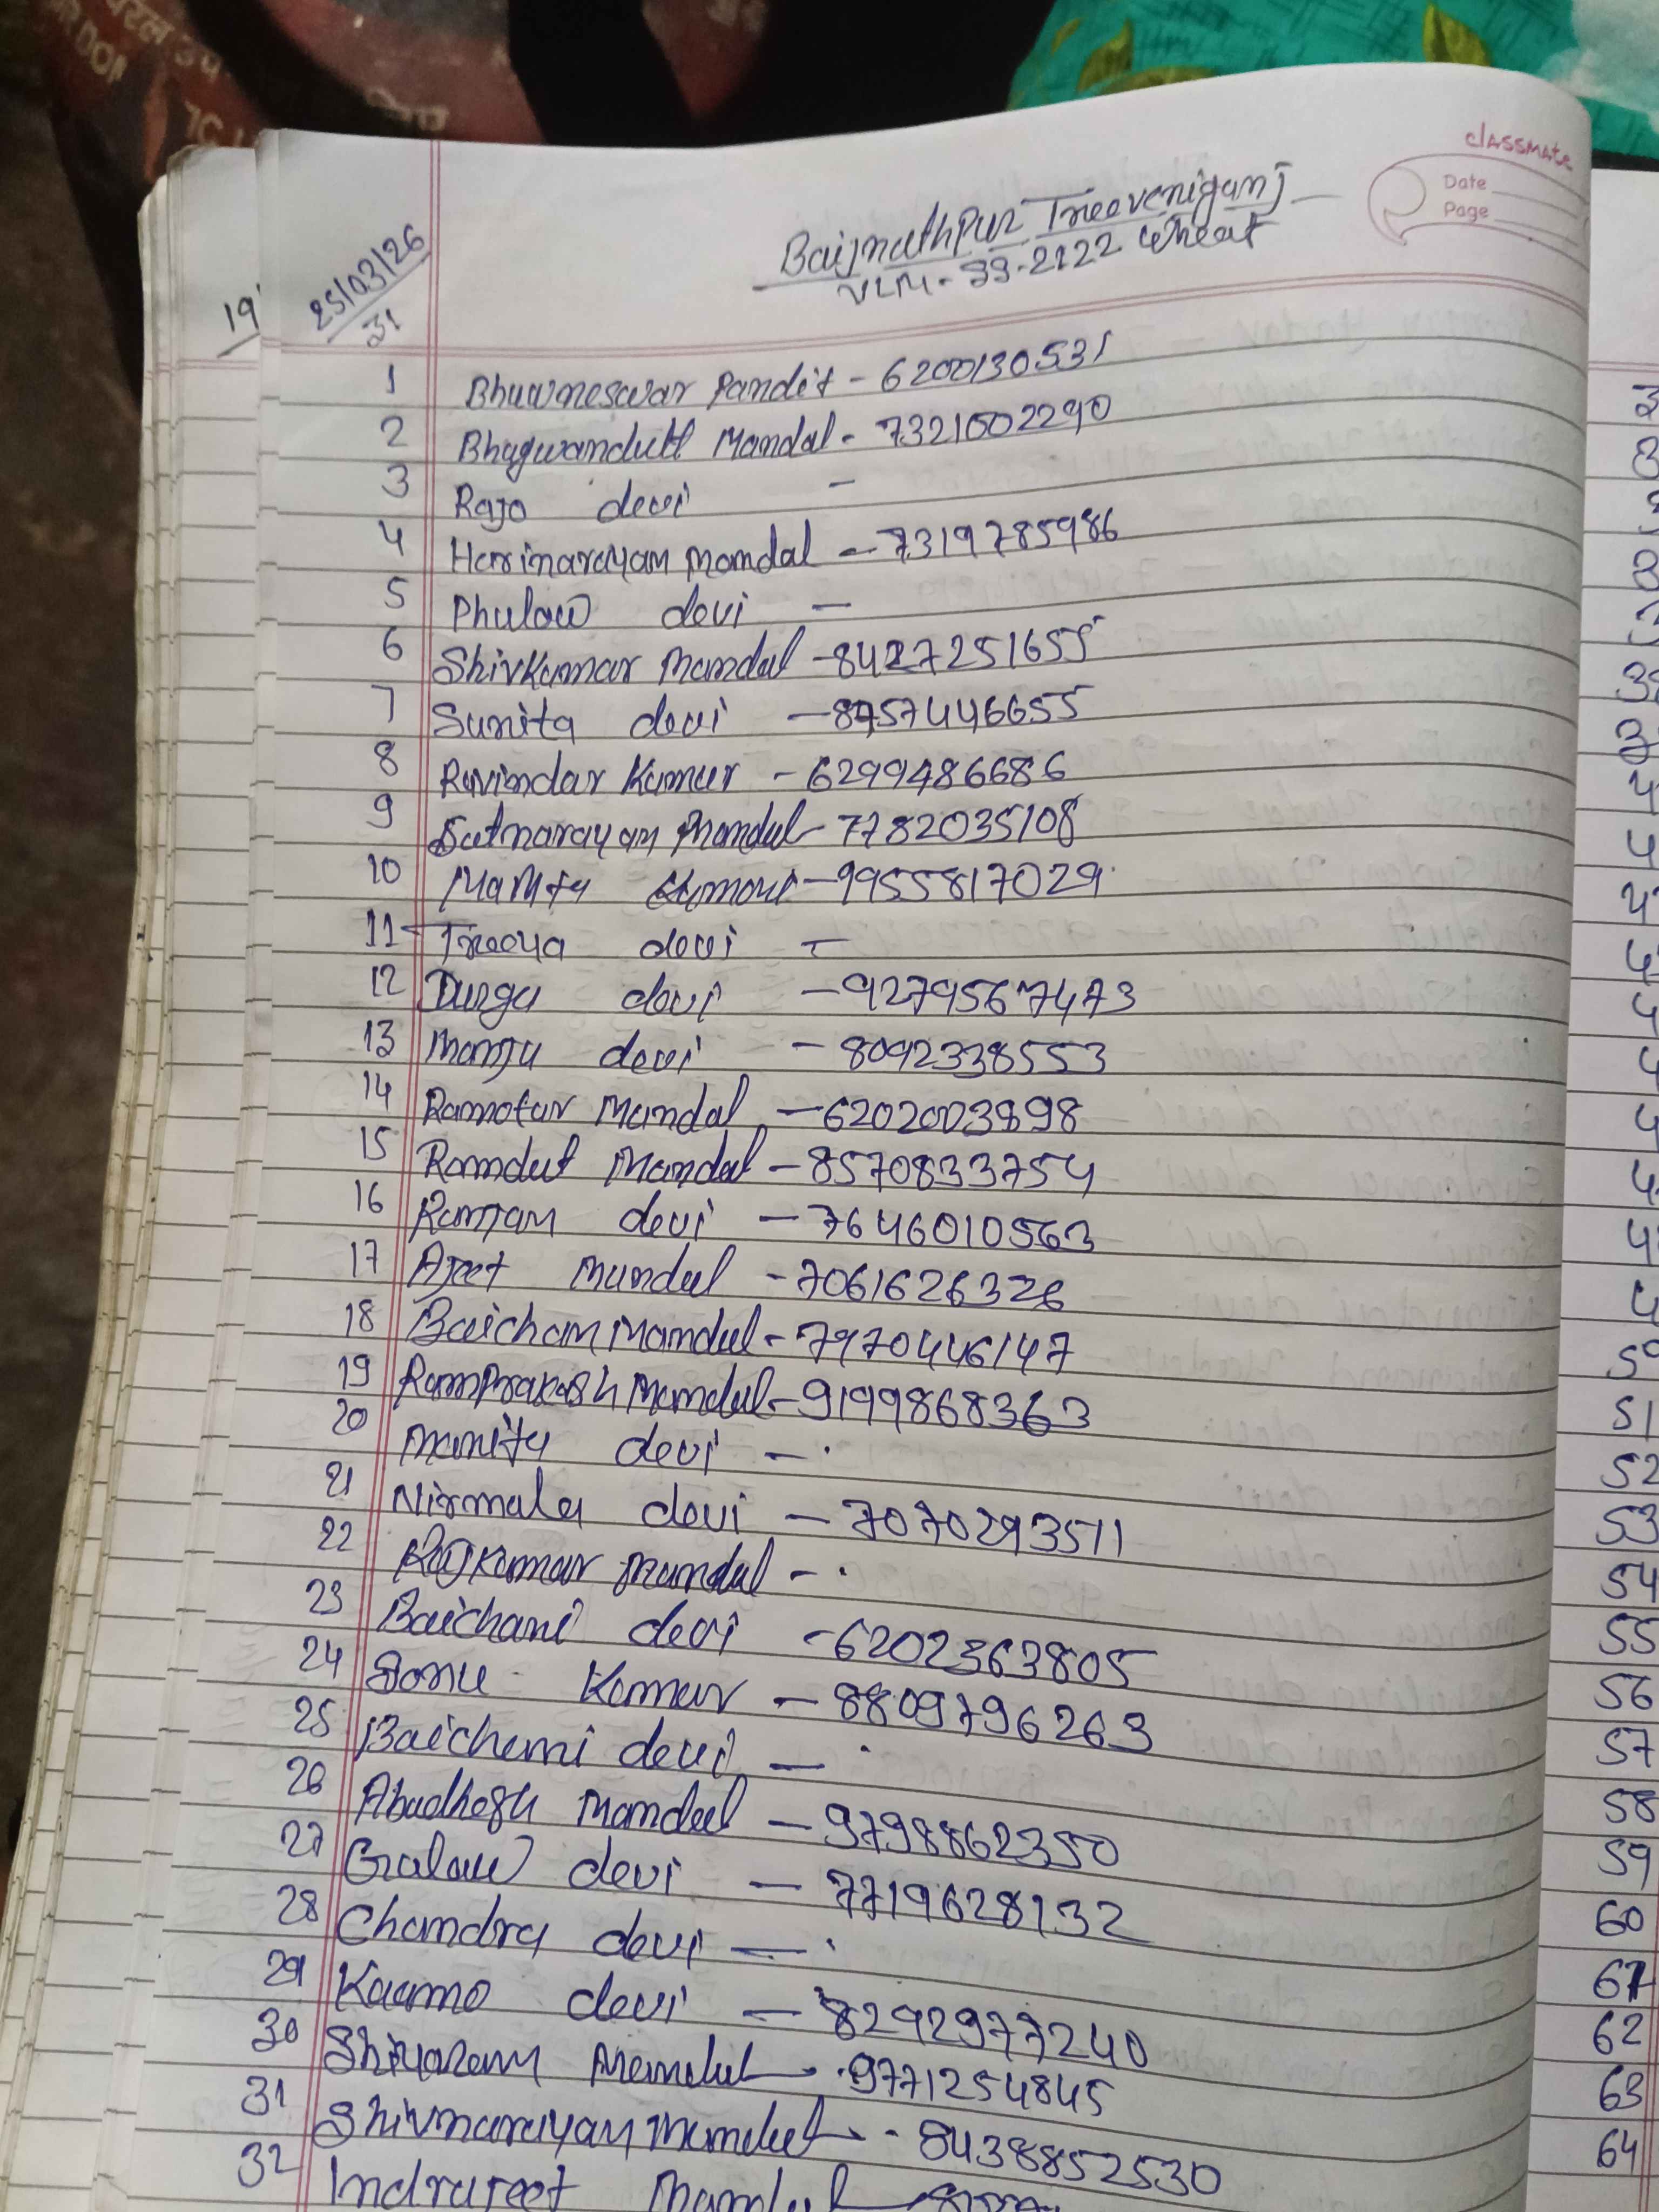 classmate
Date
Page
25/03/26
31
Baijnathpur Treeveniganj
VLM-99-2122 Wheat
19
1 Bhuwneswar Pandit - 6200130531
2 Bhagwandutt Mandal - 7321602290
3 Rajo devi -
4 Harinarayan Mandal - 7319785986
5 Phulaw devi -
6 Shivkumar Mandal - 8427251655
7 Sunita devi - 8757446655
8 Ravindar Kumar - 6299486686
9 Satnarayan Mandal - 7782035108
10 Mamta Kumari - 9955817029
11 Treeya devi -
12 Durga devi - 9279567473
13 Manju devi - 8092338553
14 Ramotar Mandal - 6202003898
15 Ramdut Mandal - 8570833754
16 Ranjan devi - 7646010563
17 Ajeet Mandal - 7061626326
18 Baichan Mandal - 7970446147
19 Ramprakash Mandal - 9199868363
20 Manita devi -
21 Nirmala devi - 7070293511
22 Rajkumar Mandal -
23 Baichani devi - 6202363805
24 Sonu Kumar - 8809796263
25 Baicheni devi -
26 Abadhesh Mandal - 9798862350
27 Gulaw devi - 7719628132
28 Chandra devi -
29 Kaamo devi - 8292977240
30 Shivaram Mandal - 9771254845
31 Shivnarayan Mandal - 8438852530
32 Indrajeet Mandal -
51
52
53
54
55
56
57
58
59
60
61
62
63
64